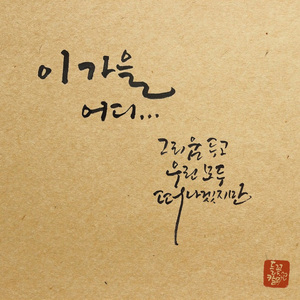 이 가을
어디...
그리움 두고
우린 모두
떠나겠지만